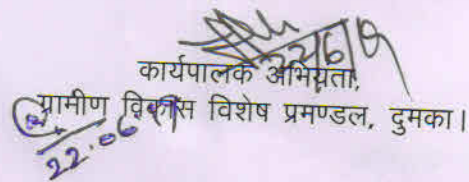 22/6/19
कार्यपालक अभियंता,
ग्रामीण विकास विशेष प्रमण्डल, दुमका।
22.06.19